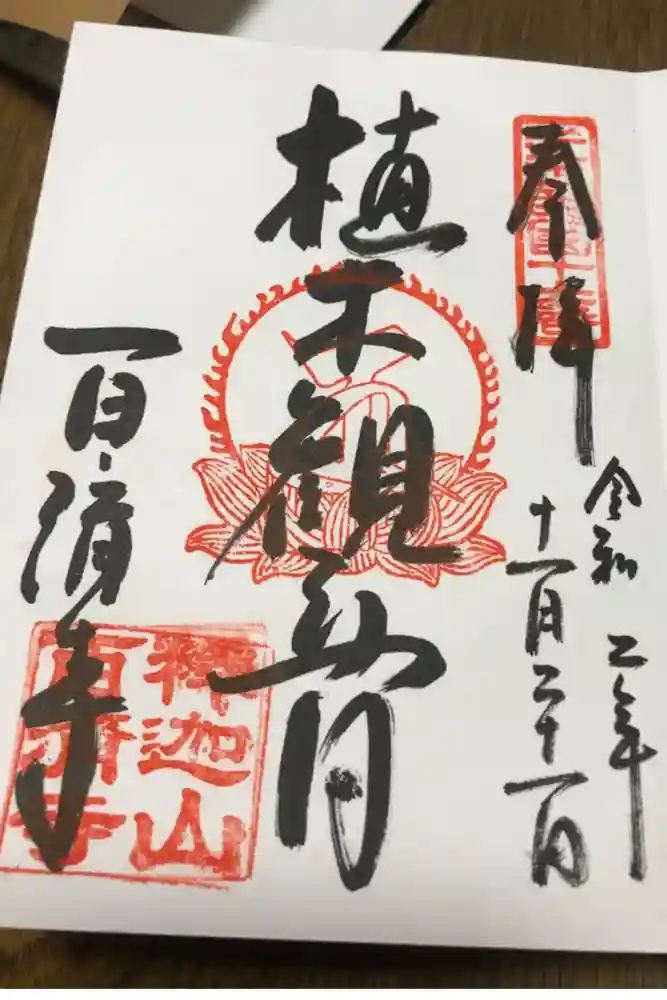 奉拝
令和二年
十一月二十一日
植木觀音
百済寺
釋迦山
百濟寺